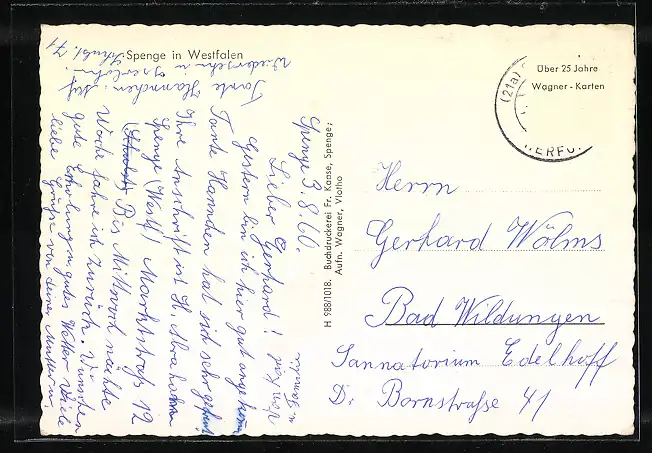 Spenge in Westfalen
Spenge 3.8.60.
Lieber Gerhard!
Gestern bin ich hier gut angekom
Tante Hannchen hat sich sehr gefreut
Ihre Anschrift ist H. Abraham
Spenge (Westf) Marktstraß 12
Bis Mittwoch nächte
Woche fahre ich zurück. Wünschen
gute Erholung u. gutes Wetter Viele
liebe Grüße von deiner Mutter u.
Tante Hannchen. Auf
Wiedersehn in Iserlohn.
von Kurt
u. Familie
H 988/1018. Buchdruckerei Fr. Kaase, Spenge;
Aufn. Wagner, Vlotho
(21a)
HERFO
Über 25 Jahre
Wagner-Karten
Herrn
Gerhard Wölms
Bad Wildungen
Sannatorium Edelhoff
D: Bornstraße 41